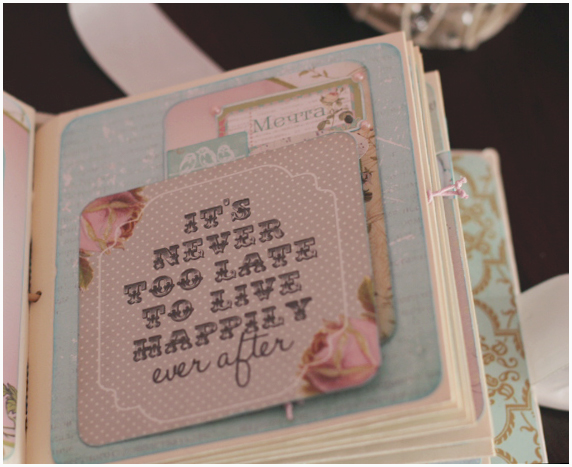 Мечта
IT'S
NEVER
TOO LATE
TO LIVE
HAPPILY
ever after